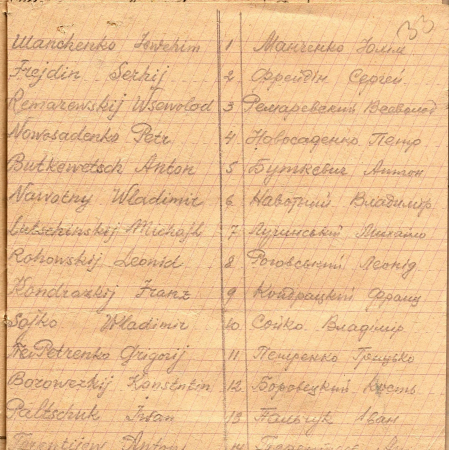 33
Manchenko Joachim 1 Манченко Юхим
Frejdin Serhij 2 Фрейдін Сергей
Remarewskij Wsewolod 3 Ремаревский Всеволод
Nowosadenko Petr 4 Новосаденко Петр
Butkewetsch Anton 5 Буткевич Антон
Nawotny Wladimir 6 Навотний Владимір
Lutschinskij Michajlo 7 Лучинський Михайло
Rohowskij Leonid 8 Роговський Леонід
Kondrazkij Franz 9 Кондрацкий Франц
Sojko Wladimir 10 Сойко Владімір
Petrenko Grigorij 11 Петренко Грицько
Borowezkij Konstentin 12 Боровецкий Кость
Paltschuk Iwan 13 Пальчук Іван
Terentijew Anton 14